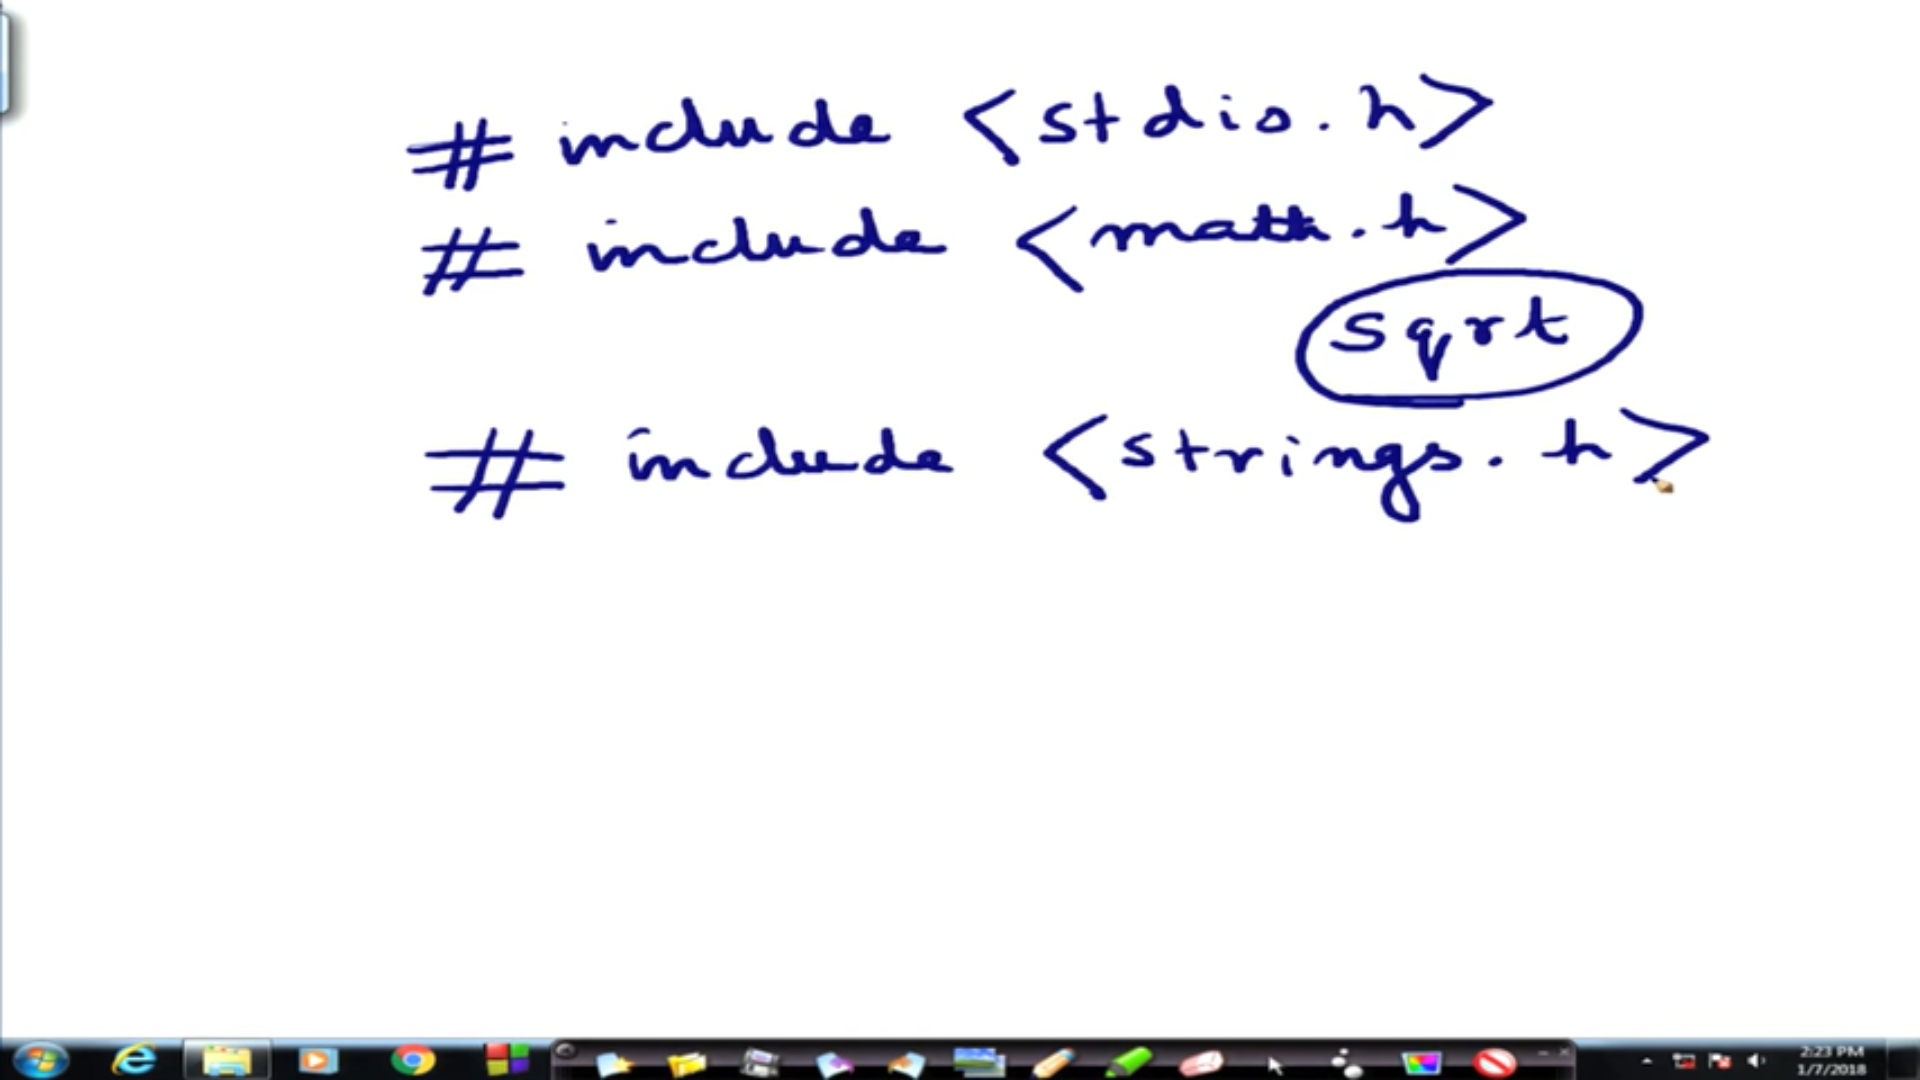 # include <stdio.h>
# include <math.h>
sqrt
# include <strings.h>
2:23 PM
1/7/2018